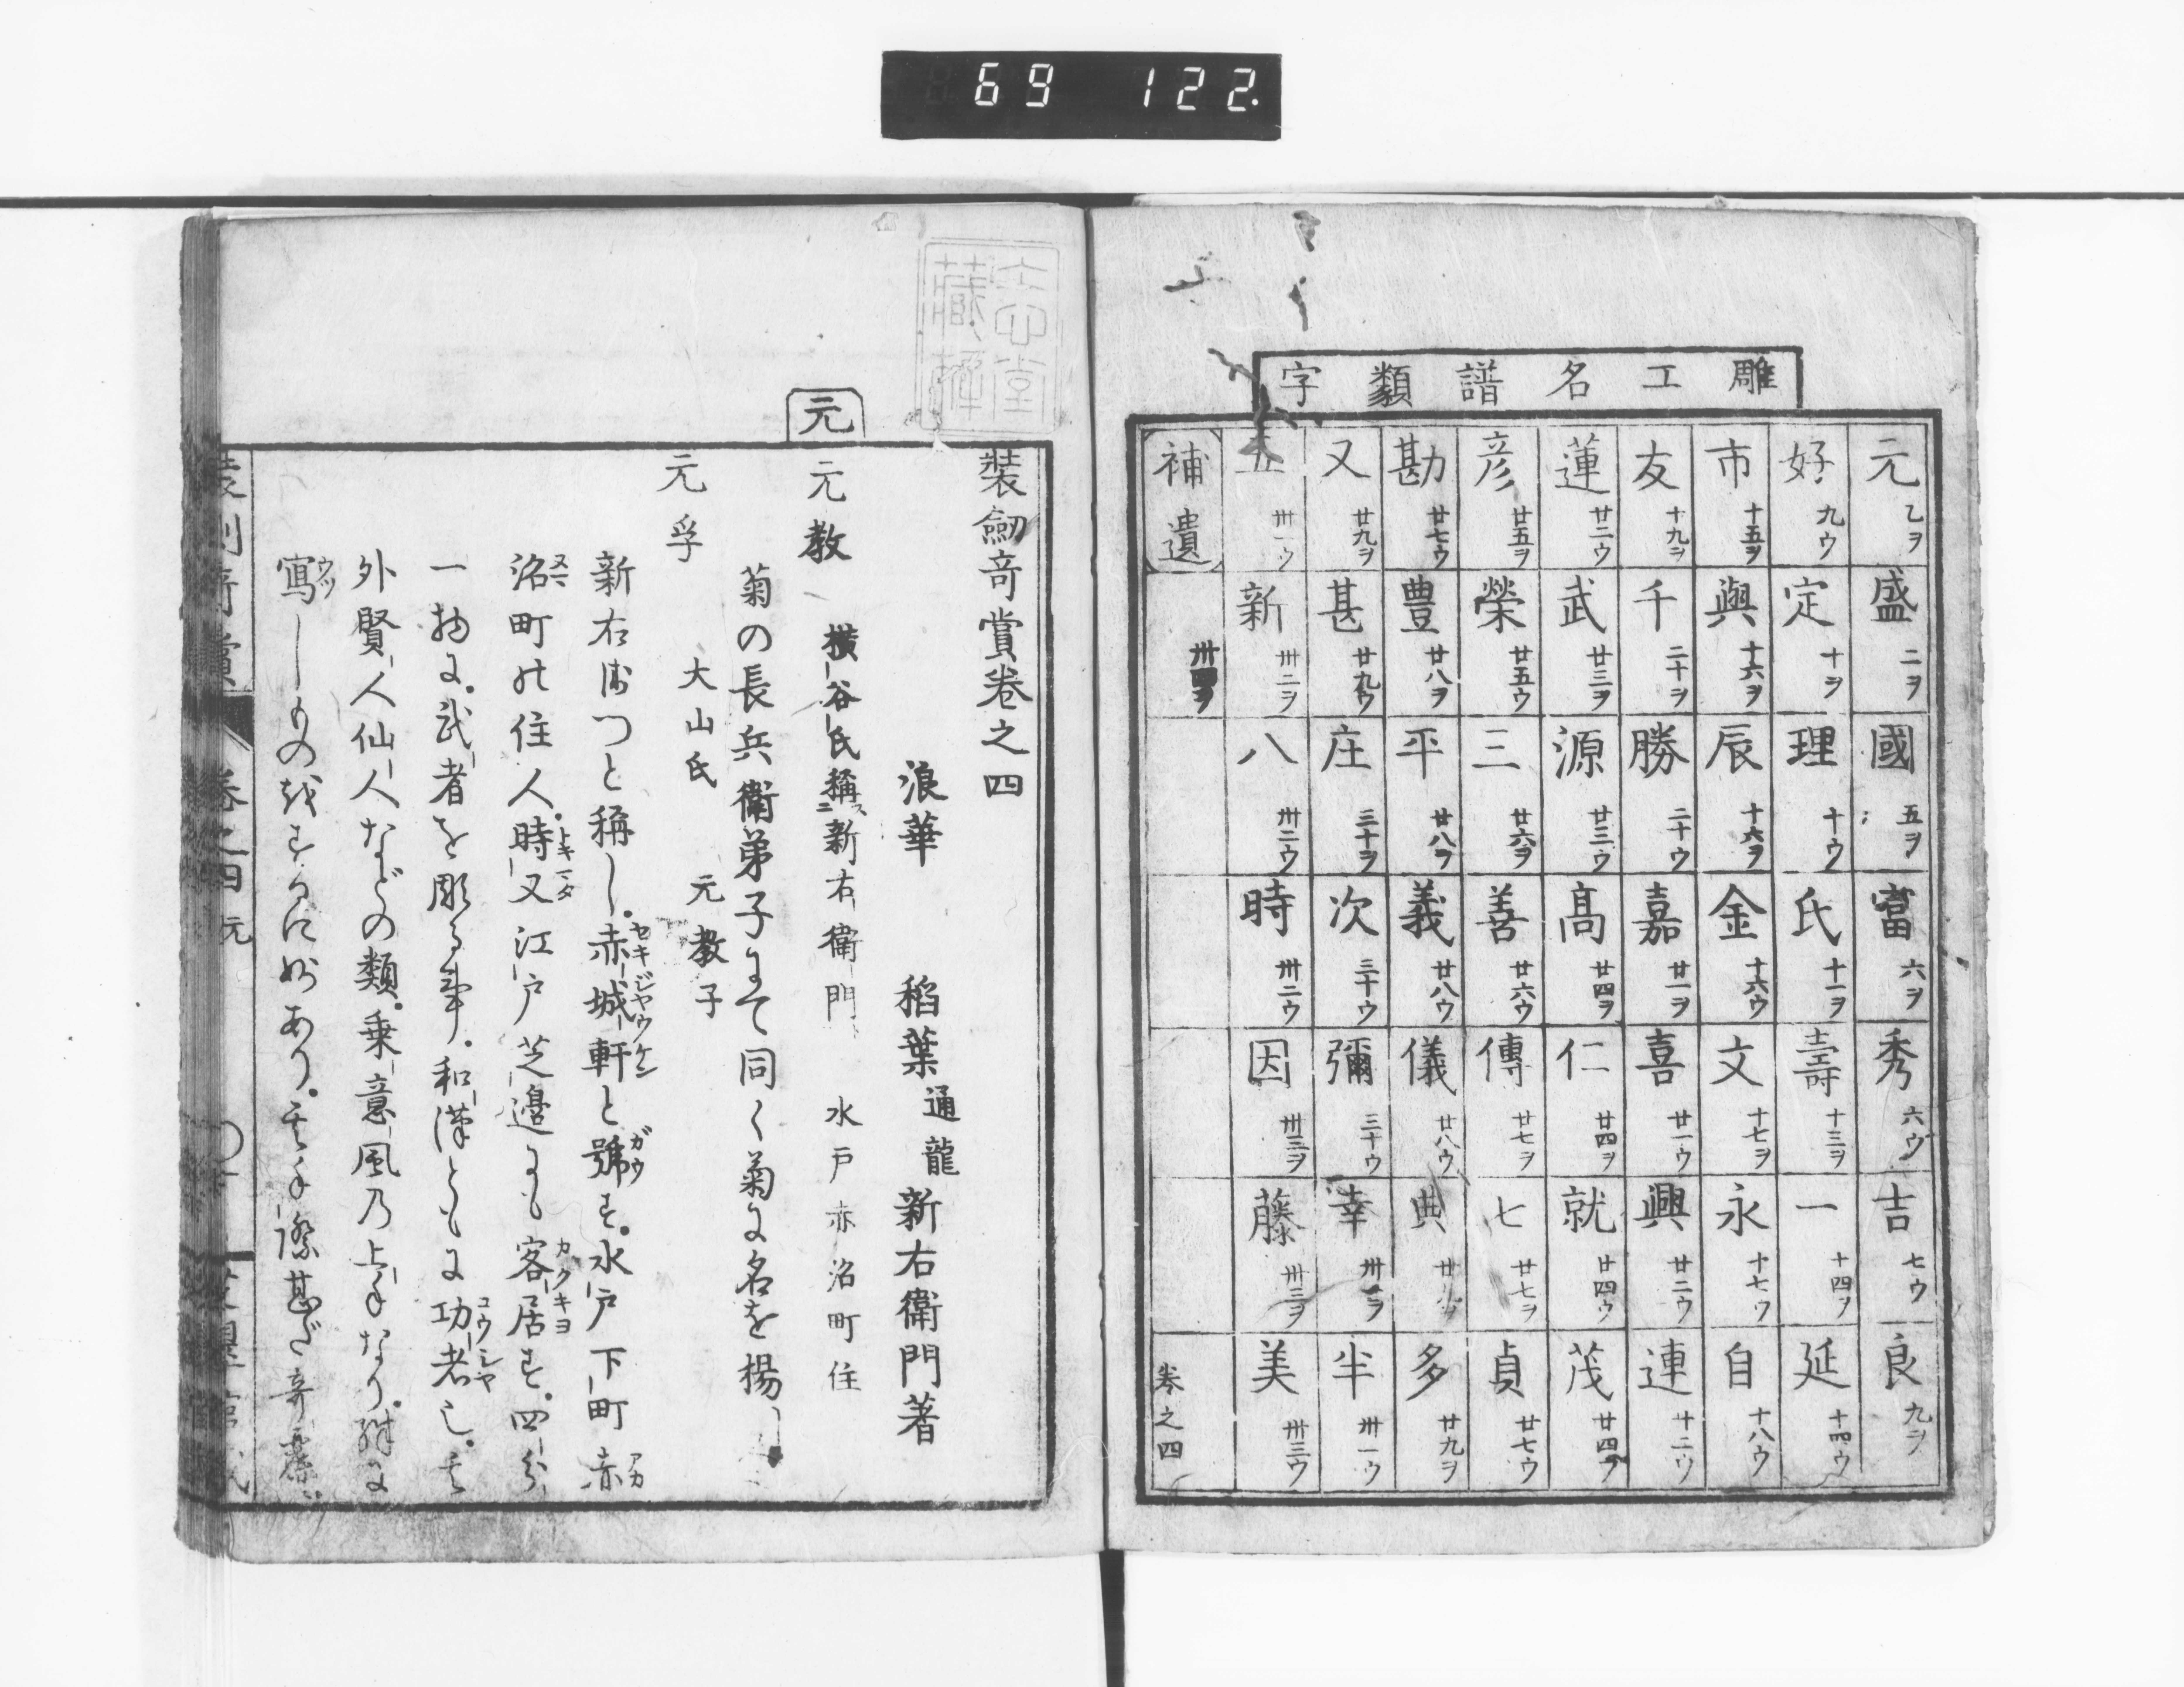 69 122.
雕工名譜類字
元 乙ヲ 盛 二ヲ 國 五ヲ 當 六ヲ 秀 六ウ 吉 七ウ 良 九ヲ
好 九ウ 定 十ヲ 理 十ウ 氏 十一ヲ 壽 十三ヲ 一 十四ヲ 延 十四ウ
市 十五ヲ 與 十六ヲ 辰 十六ヲ 金 十六ウ 文 十七ヲ 永 十七ウ 自 十八ウ
友 十九ヲ 千 二十ヲ 勝 二十ウ 嘉 廿一ヲ 喜 廿一ウ 興 廿二ウ 連 廿二ウ
蓮 廿二ウ 武 廿三ヲ 源 廿三ウ 髙 廿四ヲ 仁 廿四ヲ 就 廿四ウ 茂 廿四ウ
彦 廿五ヲ 榮 廿五ウ 三 廿六ヲ 善 廿六ウ 傳 廿七ヲ 七 廿七ヲ 貞 廿七ウ
勘 廿七ウ 豊 廿八ヲ 平 廿八ヲ 義 廿八ウ 儀 廿八ウ 典 多 廿九ヲ
又 廿九ヲ 甚 廿九ウ 庄 三十ヲ 次 三十ウ 彌 三十ウ 幸 卅一ヲ 半 卅一ウ
五 卅一ウ 新 卅二ヲ 八 卅二ウ 時 卅二ウ 因 卅三ヲ 藤 卅三ヲ 美 卅三ウ
補遺 卅四ヲ
巻之四
志堂藏
元
裝劔奇賞巻之四
浪華 稻葉通龍新右衞門著
元教 横谷氏稱ス新右衞門 水戸赤沼町住
菊の長兵衞弟子にて同く菊に名を揚
元孚 大山氏 元教子
新右衛つと稱し。赤城軒と號す。水戸下町赤
セキジヤウケン ガウ アカ
沼町の住人。時又江戸芝邊にも客居す。四分
ヌマ トキマタ カクキヨ
一物に。武者を彫る事。和漢ともに功者也。其
コウシヤ
外賢人仙人などの類。乗意風乃上手なり。殊に
寫しもの抔するに妙あり。其手際甚だ奇麗
ウツ
巻之四 元